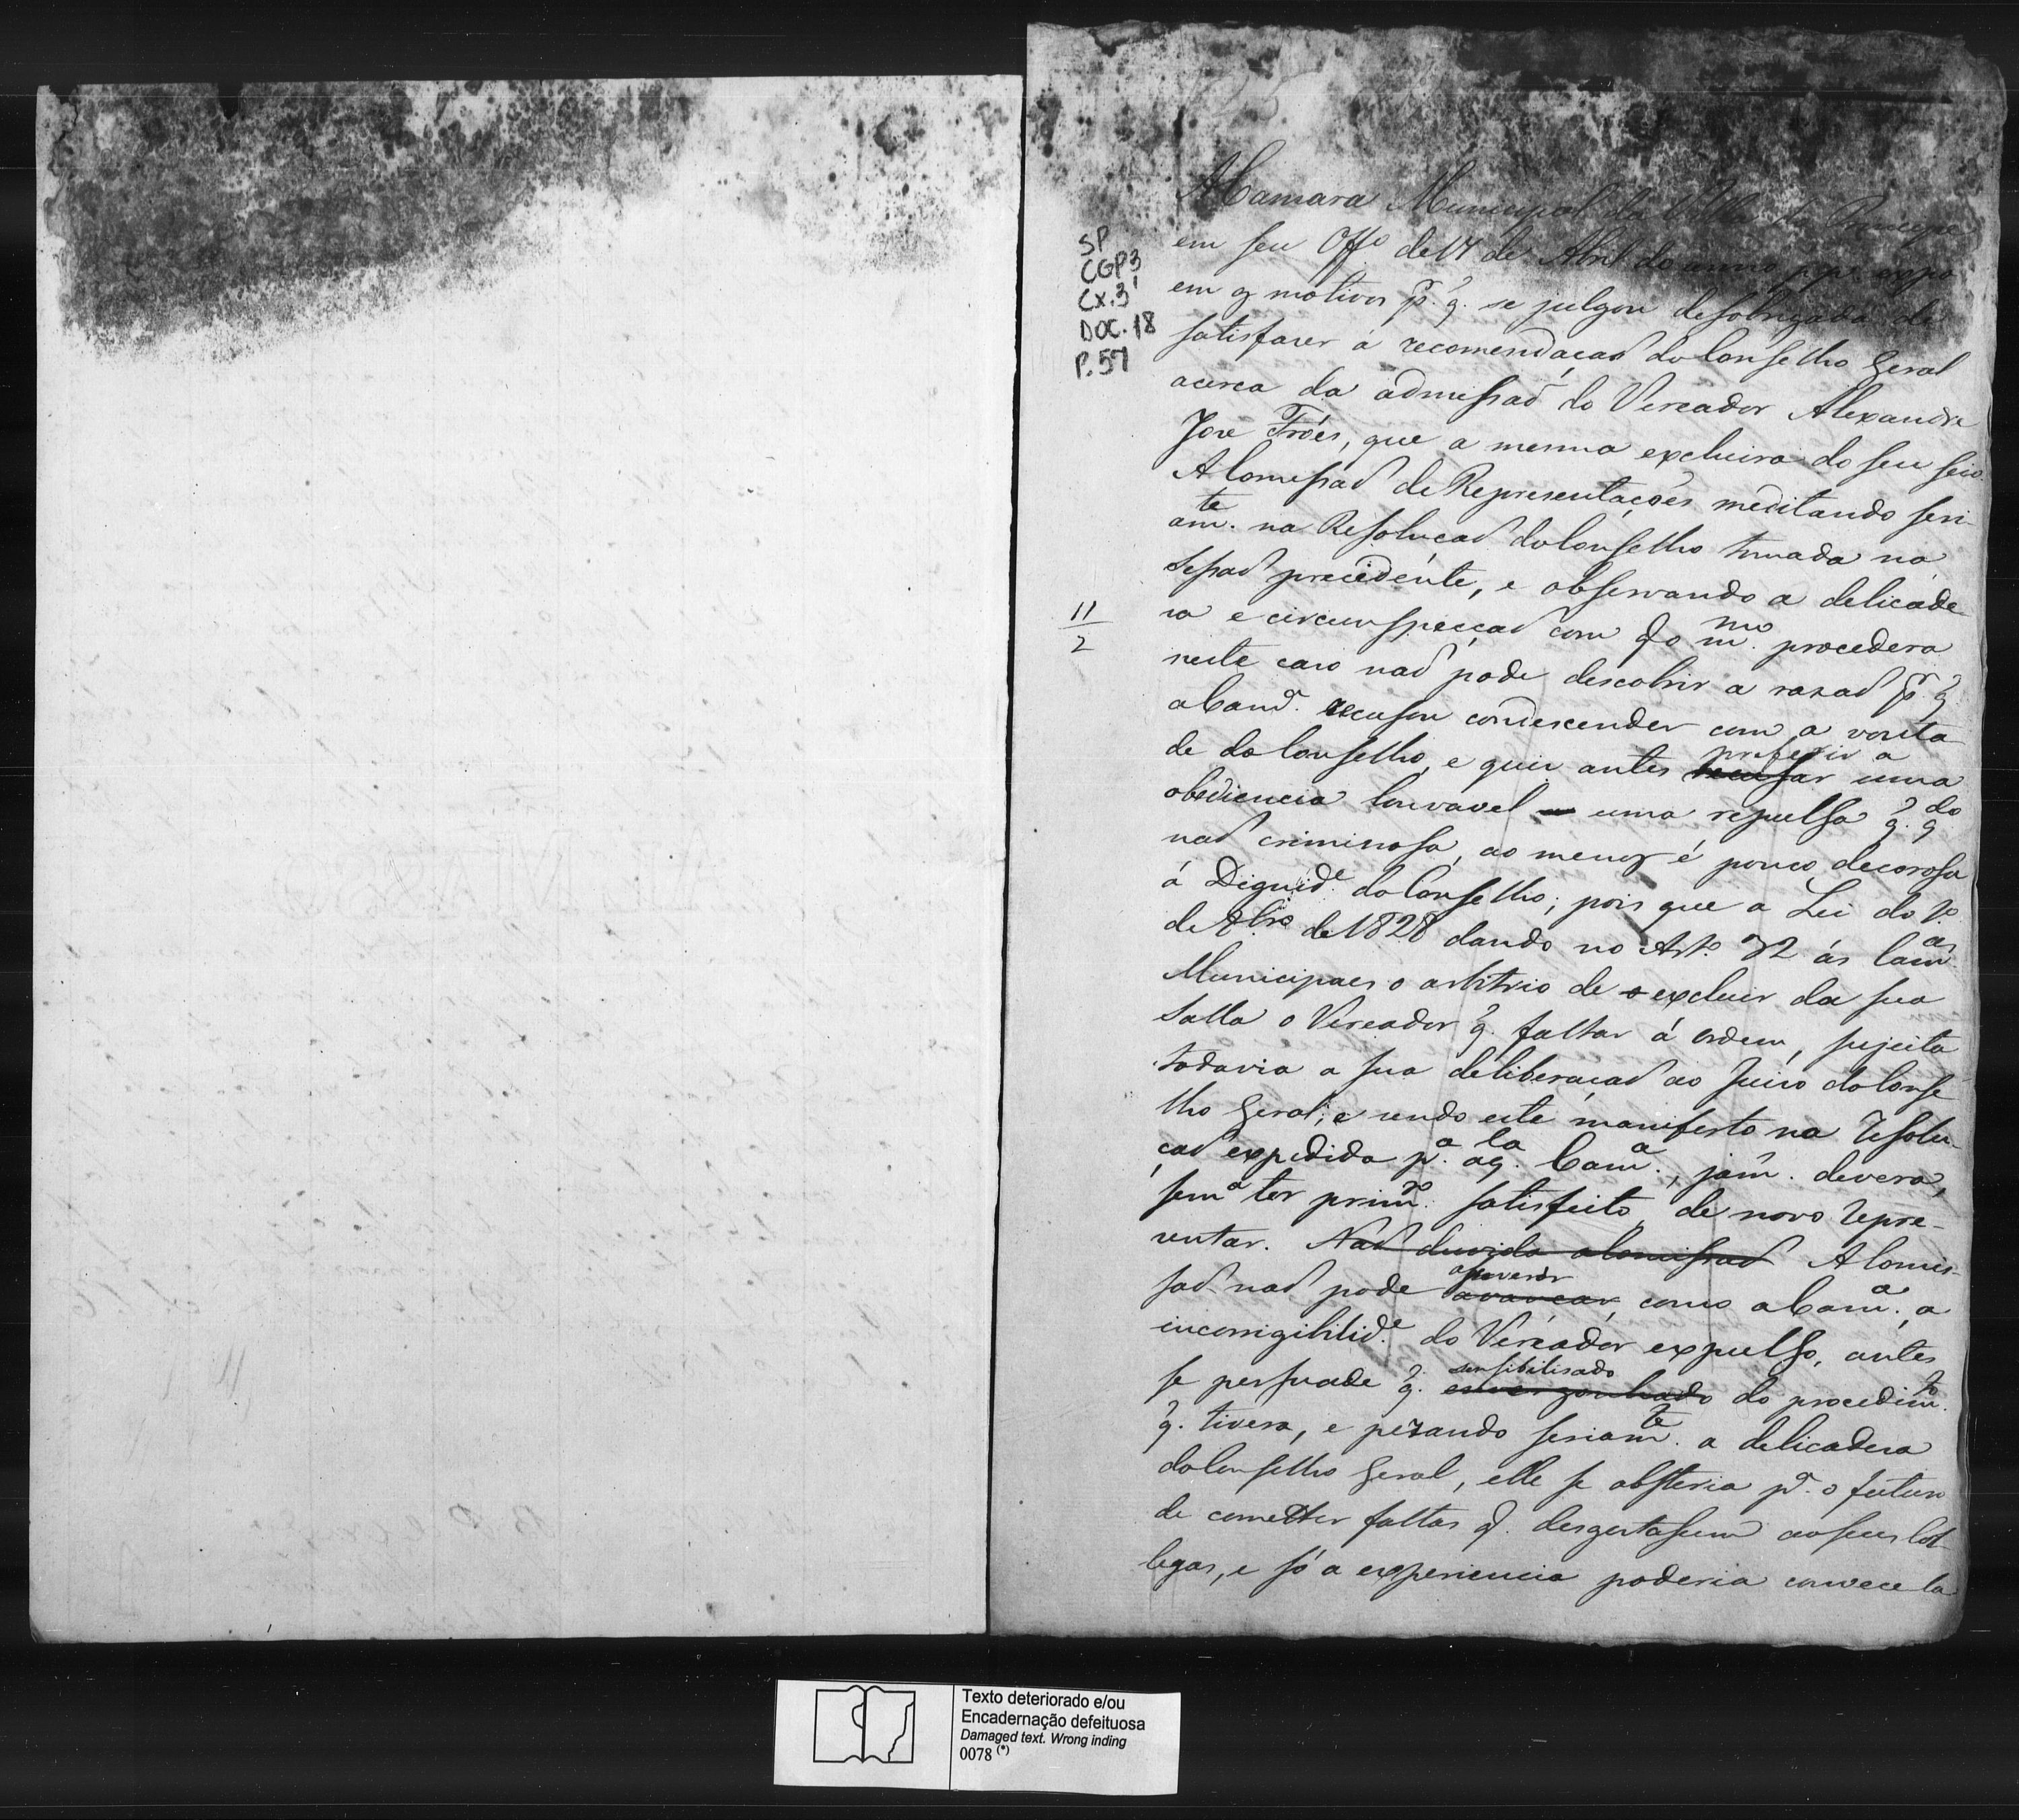 SP
CGP3
Cx.3
DOC.18
P.57
11
2
A Camara Municipal da Villa do Principe
em seu Off.º de 17 de Abril do anno p.p. expo
em os motivos p.r q. se julgou desobrigada de
satisfazer á recomendaçaõ do Conselho Geral
acerca da admissaõ do Vereador Alexandre
Jose Fróes, que a mesma excluira do seu seio.
A Comissaõ de Representações meditando seri-
am.te na Resoluçaõ do Conselho tomada na
Sessaõ precedente, e observando a delicade-
za e circunspecçaõ com q o m.mo procedera
neste caso naõ pode descobrir a razaõ p.r q.
a Cam.ª recusou condescender com a vonta
de do Conselho, e quiz antes recusar preferir a uma
obediencia louvavel uma repulsa q. q.do
naõ criminosa, ao menos é pouco decorosa
á Dignid.e do Conselho; pois que a Lei do 1.º
de 8br.º de 1828 dando no Art.º 32 ás Cam.as
Municipaes o arbitrio de excluir da sua
Salla o Vereador q. faltar á ordem, sujeita
todavia a sua deliberaçaõ ao Juizo do Conse
lho Geral; e sendo este manifesto na resolu-
çaõ expedida p.ª aq.la Cam.ª, jam. devera,
sem a ter prim.ro satisfeito, de novo repre-
sentar. Naõ duvida a Comissaõ A Comis-
saõ naõ pode avançar asseverar, como a Cam.ª, a
incorrigibilid.e do Vereador expulso, antes
se persuade q. envergonhado sensibilisado do procedim.to
q. tivera, e pezando seriam.te a delicadeza
do Conselho Geral, elle se absteria p.ª o futuro
de cometter faltas q. desgostassem aos seus Col-
legas, e só a experiencia poderia convece la
Texto deteriorado e/ou
Encadernação defeituosa
Damaged text. Wrong inding
0078 (*)